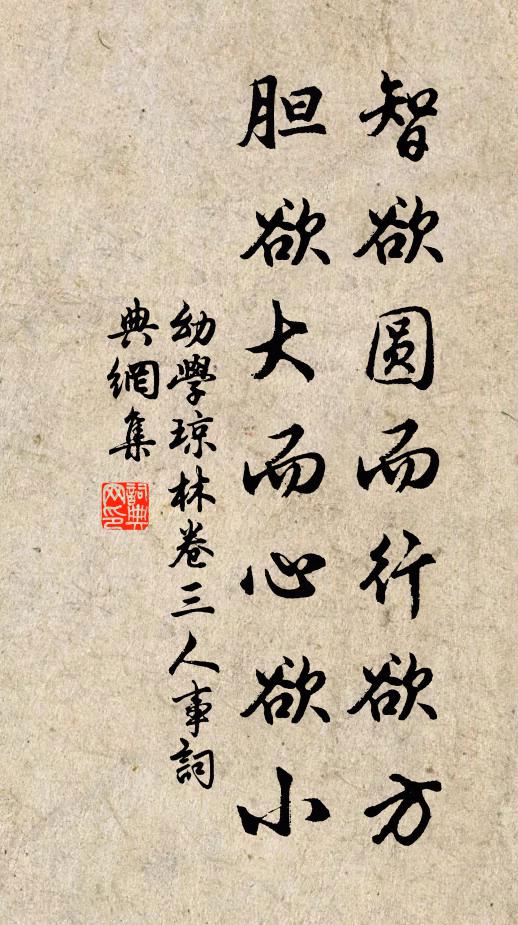 智欲圆而行欲方
胆欲大而心欲小
幼學琼林卷三人事詞
典網集
詞典
网印